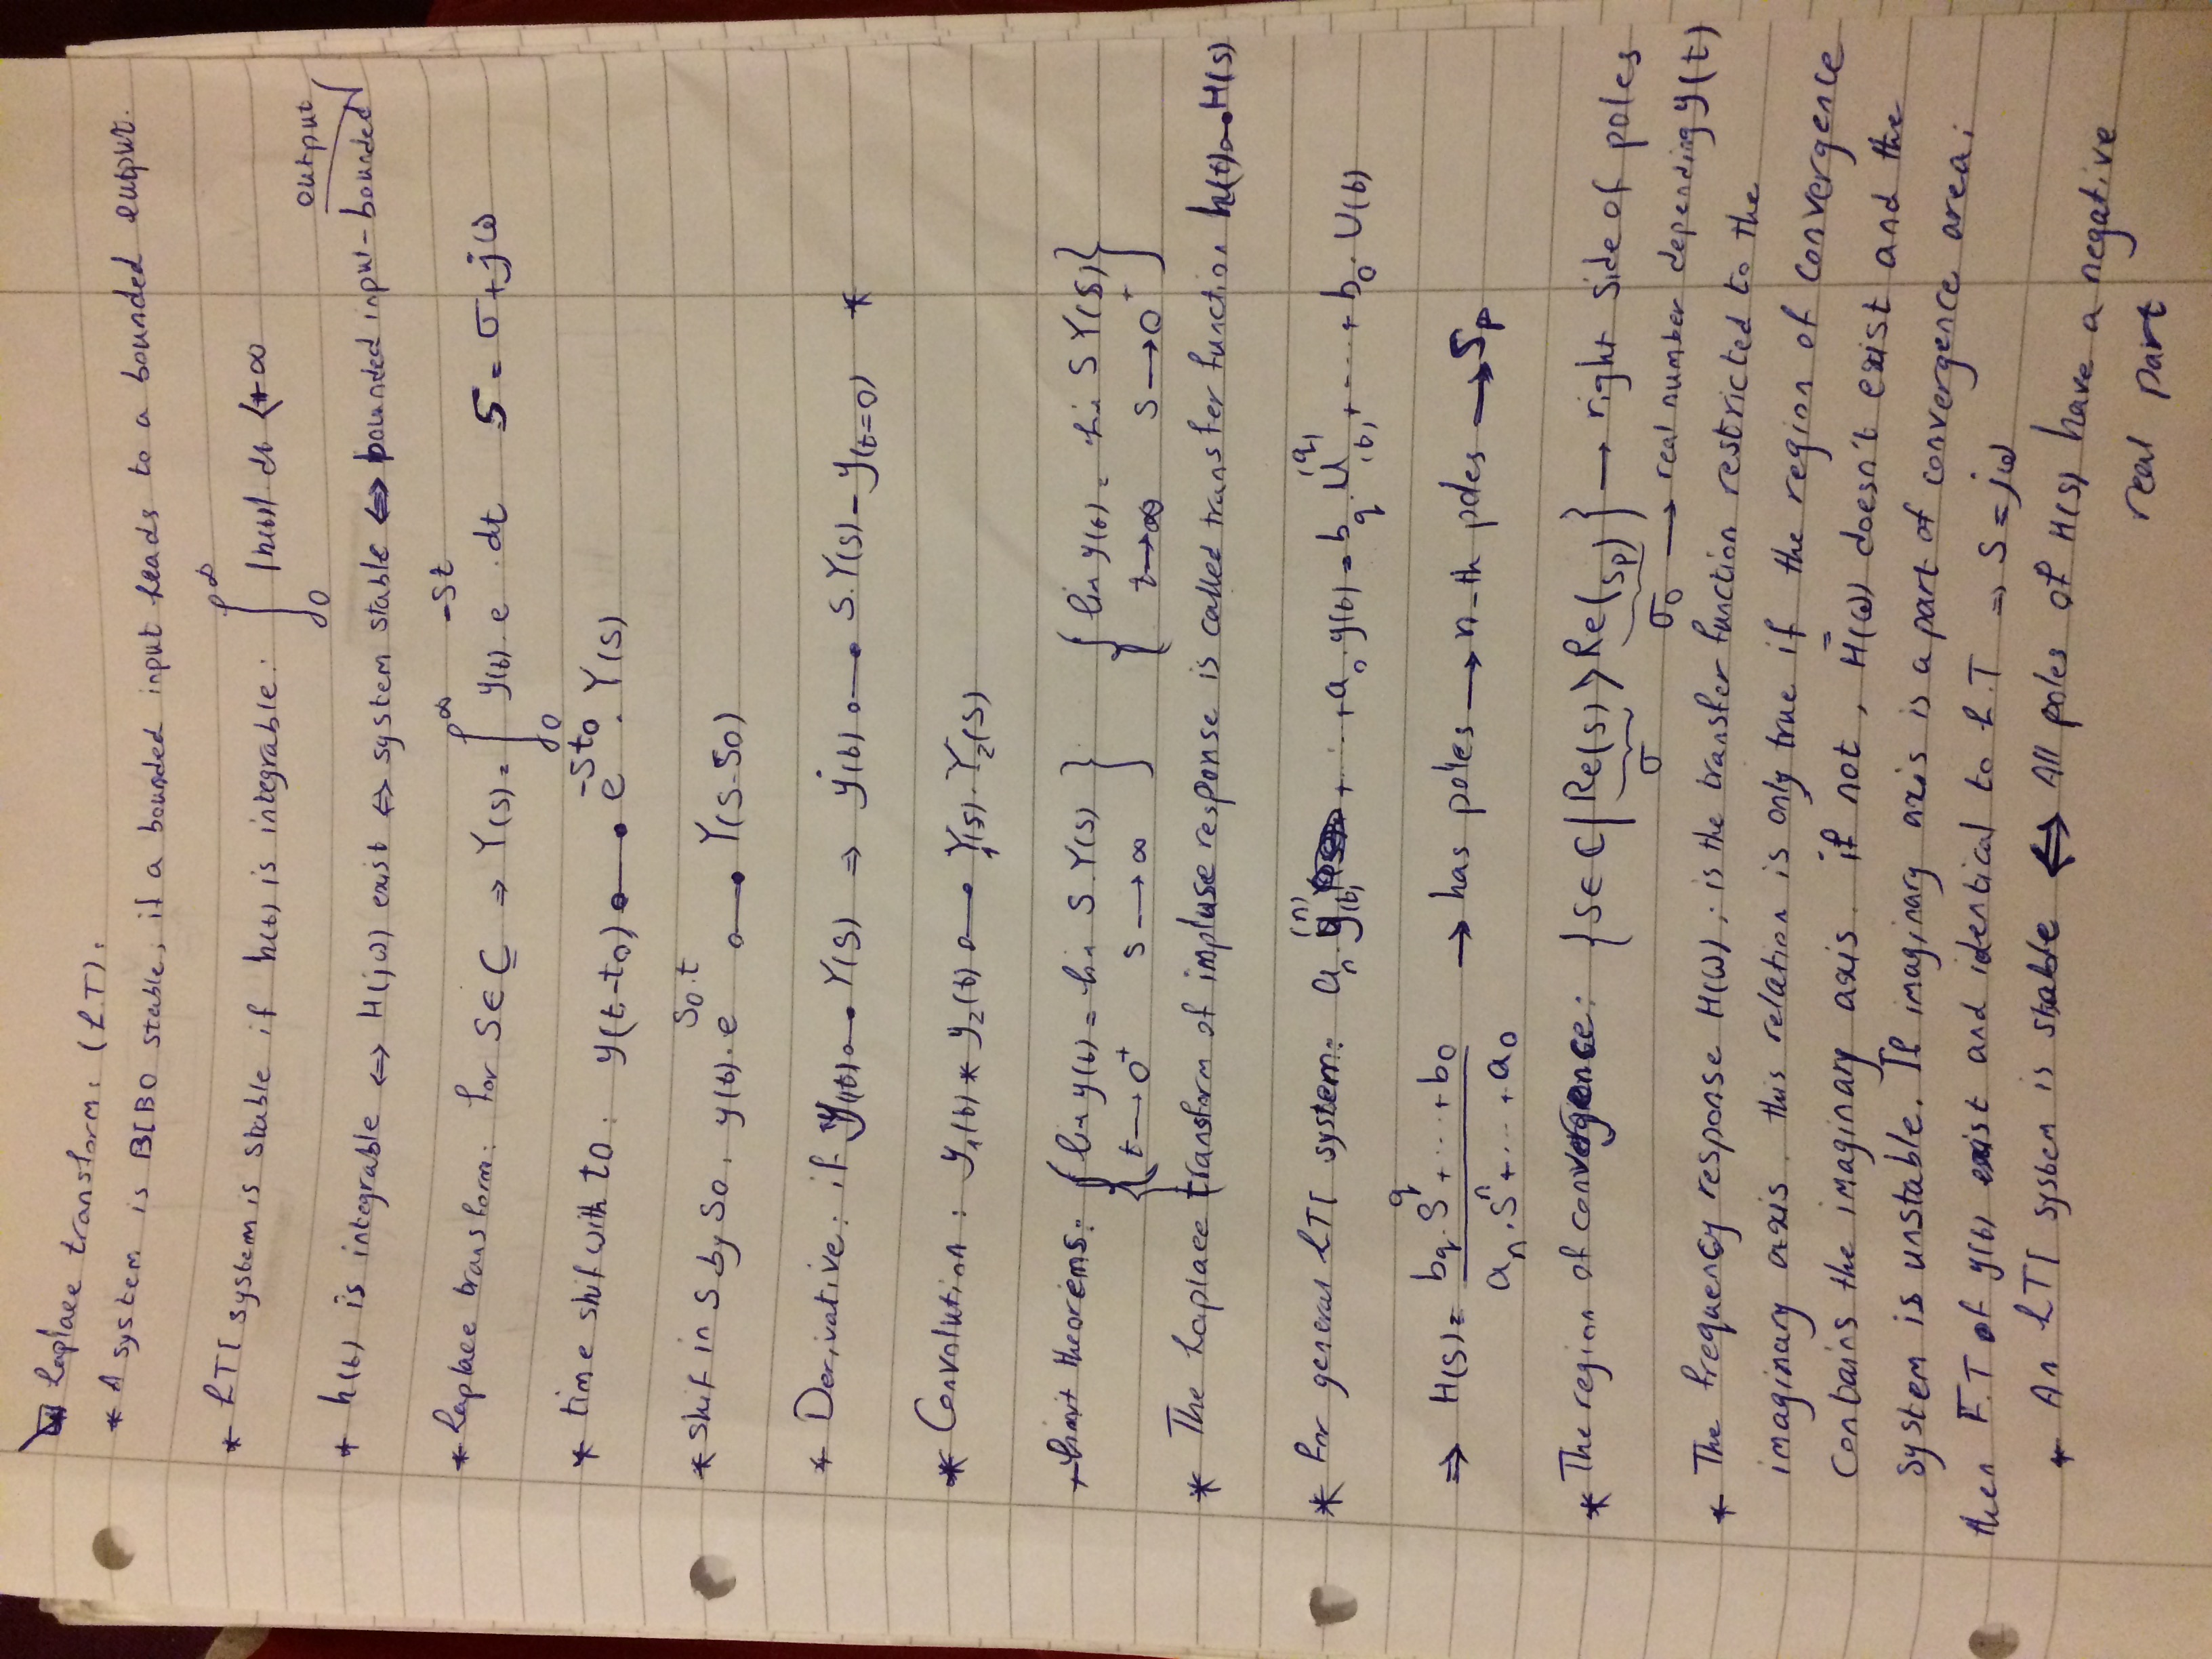 Laplace transform: (L.T):
* A system is BIBO stable, if a bounded input leads to a bounded output.
* LTI system is stable if h(t) is integrable: ∫₀^∞ |h(t)| dt < +∞
* h(t) is integrable ⇔ H(jω) exist ⇔ system stable ⇔ bounded input - bounded output
* Laplace transform: for S ∈ C ⇒ Y(s) = ∫₀^∞ y(t) . e^(-st) . dt S = σ + jω
* time shif with t0: y(t-t0) o—• e^(-st0) . Y(s)
* shif in S by S0, y(t) . e^(S0.t) o—• Y(S-S0)
* Derivative: if y(t) o—• Y(S) ⇒ ẏ(t) o—• S.Y(s) - y(t=0) *
* Convolution: y₁(t) * y₂(t) o—• Y₁(s) . Y₂(s)
* limit theorems: { lim y(t) = lim S.Y(s) } { lim y(t) = lim S Y(S) }
t → 0⁺ s → ∞ t → ∞ s → 0⁺
* The Laplace transform of impluse response is called transfer function h(t) o—• H(s)
* for general LTI system: aₙ . y⁽ⁿ⁾(t) + ... + a₀ . y(t) = b_q . U^(q)(t) + ... + b₀ . U(t)
⇒ H(s) = (b_q . S^q + ... + b₀) / (aₙ . Sⁿ + ... + a₀) → has poles → n-th poles → S_p
* The region of convergence: { s ∈ C | Re(s) > Re(s_p) } → right side of poles
σ σ₀ → real number depending y(t)
* The frequency response H(ω); is the transfer function restricted to the
imaginary axis. this relation is only true if the region of convergence
contains the imaginary axis. if not, H(ω) doesn't exist and the
system is unstable. If imaginary axis is a part of convergence area;
then F.T of y(t) exist and identical to L.T ⇒ S = jω
* An LTI system is stable ⇔ All poles of H(s) have a negative
real part